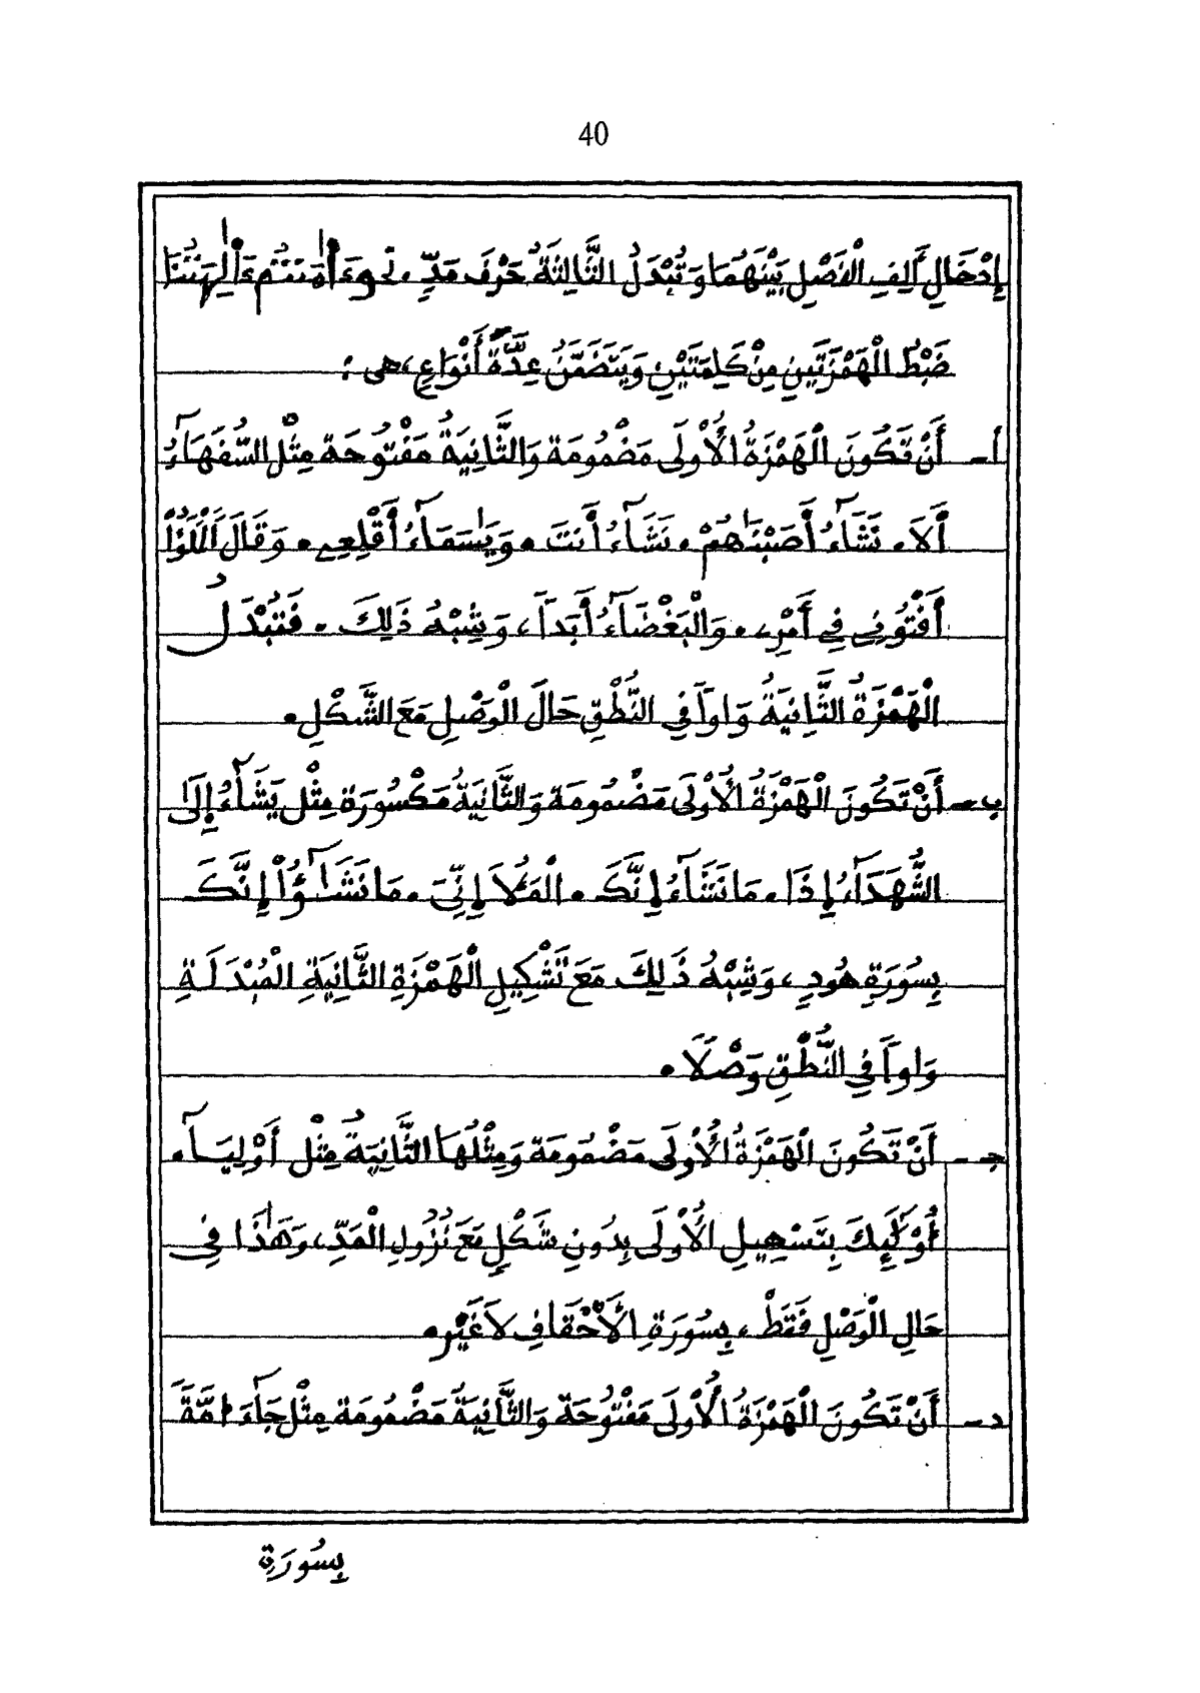 40
إِدْخَالِ أَلِفِ الْفَصْلِ بَيْنَهُمَا وَتُبْدَلُ الثَّالِثَةُ حَرْفَ مَدٍّ. نحو ءَاٰ۬مَنتُم ءَاٰ۬لِهَتُنَا
ضَبْطُ الْهَمْزَتَيْنِ مِنْ كَلِمَتَيْنِ وَيَتَضَمَّنُ عِدَّةَ أَنْوَاعٍ، هى :
أ - أَنْ تَكُونَ الْهَمْزَةُ الْأُولَى مَضْمُومَة وَالثَّانِيَةُ مَفْتُوحَة مِثْل السُّفَهَآءُ
أَلَا. نَشَآءُ أَصَبْنَٰهُمْ. نَشَآءُ أَنتَ. وَيَٰسَمَآءُ أَقْلِعِي. وَقَالَ الْمَلَؤُاْ
أَفْتُونِي فِي أَمْرِي. وَالْبَغْضَآءُ أَبَداً، وَشِبْهُ ذَلِكَ. فَتُبْدَلُ
الْهَمْزَةُ الثَّانِيَةُ وَاواً فِي النُّطْقِ حَالَ الْوَصْلِ مَعَ الشَّكْلِ.
ب - أَنْ تَكُونَ الْهَمْزَةُ الْأُولَى مَضْمُومَة وَالثَّانِيَةُ مَكْسُورَة مِثْل يَشَآءُ إِلَىٰ
الشُّهَدَآءُ إِذَا. مَا نَشَآءُ إِنَّكَ. الْمَلَأُ إِنِّيَ. مَا نَشَٰٓؤُاْ إِنَّكَ
بِسُورَةِ هُودٍ، وَشِبْهُ ذَلِكَ مَعَ تَشْكِيلِ الْهَمْزَةِ الثَّانِيَةِ الْمُبْدَلَةِ
وَاواً فِي النُّطْقِ وَصْلاً.
جـ - أَنْ تَكُونَ الْهَمْزَةُ الْأُولَى مَضْمُومَة وَمِثْلُهَا الثَّانِيَةُ مِثْل أَوْلِيَآءُ
أُوْلَٰٓئِكَ بِتَسْهِيلِ الْأُولَى بِدُونِ شَكْلٍ مَعَ نُزُولِ الْمَدِّ، وَهَٰذَا فِي
حَالِ الْوَصْلِ فَقَطْ، بِسُورَةِ الْأَحْقَافِ لاَ غَيْر.
د - أَنْ تَكُونَ الْهَمْزَةُ الْأُولَى مَفْتُوحَة وَالثَّانِيَةُ مَضْمُومَة مِثْل جَآءَ امَّةً
بِسُورَةِ